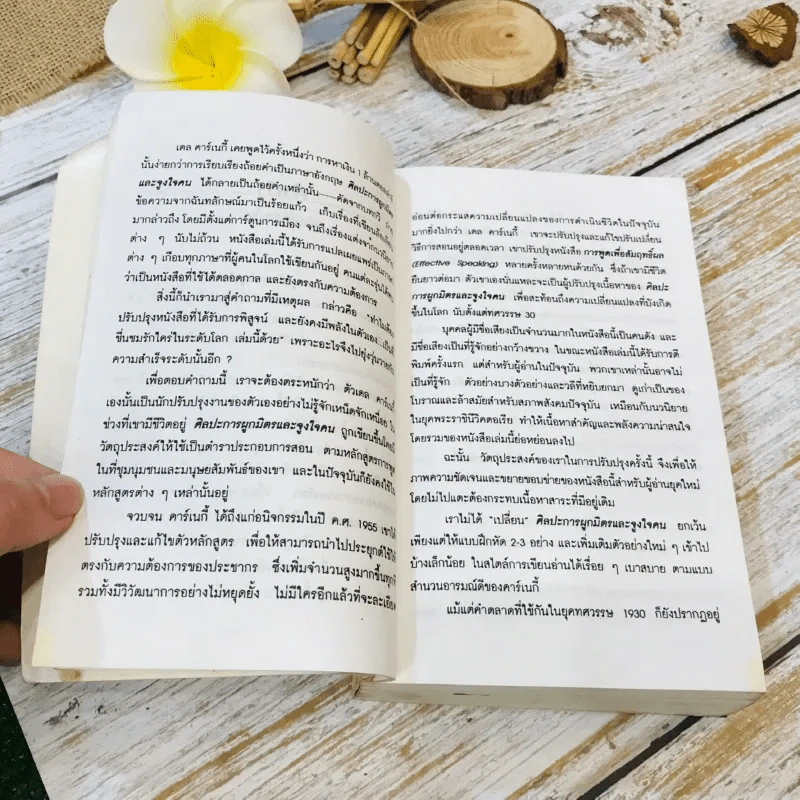 เดล คาร์เนกี้ เคยพูดไว้ครั้งหนึ่งว่า การหาเงิน 1
นั้นง่ายกว่าการเรียบเรียงถ้อยคำเป็นภาษาอังกฤษ
และจูงใจคน ได้กลายเป็นถ้อยคำเหล่านั้น
ข้อความจากฉันทลักษณ์มาเป็นร้อยแก้ว
มากล่าวถึง โดยมีตั้งแต่การ์ตูนการเมือง จนถึงเรื่องแต่ง
ต่าง ๆ นับไม่ถ้วน หนังสือเล่มนี้ได้รับการแปลเผยแพร่เป็น
ต่าง ๆ เกือบทุกภาษาที่ผู้คนในโลกใช้เขียนกันอยู่
ว่าเป็นหนังสือที่ใช้ได้ตลอดกาล และยังตรงกับความต้องการ
สิ่งนี้ก็นำเรามาสู่คำถามที่มีเหตุผล กล่าวคือ
ปรับปรุงหนังสือที่ได้รับการพิสูจน์ และยังคงมีพลังในตัวเอง
ชื่นชมรักใคร่ในระดับโลก เล่มนี้ด้วย" เพราะอะไรจึงไปยุ่งวุ่นวาย
ความสำเร็จระดับนั้นอีก ?
เพื่อตอบคำถามนี้ เราจะต้องตระหนักว่า ตัวเดล คาร์เนกี้
เองนั้นเป็นนักปรับปรุงงานของตัวเองอย่างไม่รู้จักเหน็ดจักเหนื่อย
ช่วงที่เขามีชีวิตอยู่ ศิลปะการผูกมิตรและจูงใจคน ถูกเขียนขึ้น
วัตถุประสงค์ให้ใช้เป็นตำราประกอบการสอน ตามหลักสูตรการพูด
ในที่ชุมนุมชนและมนุษยสัมพันธ์ของเขา และในปัจจุบันก็ยังคงใช้
หลักสูตรต่าง ๆ เหล่านั้นอยู่
จวบจน คาร์เนกี้ ได้ถึงแก่อนิจกรรมในปี ค.ศ. 1955 เขาได้
ปรับปรุงและแก้ไขตัวหลักสูตร เพื่อให้สามารถนำไปประยุกต์ใช้ได้
ตรงกับความต้องการของประชากร ซึ่งเพิ่มจำนวนสูงมากขึ้นทุก
รวมทั้งมีวิวัฒนาการอย่างไม่หยุดยั้ง ไม่มีใครอีกแล้วที่จะละเอียด
อ่อนต่อกระแสความเปลี่ยนแปลงของการดำเนินชีวิตในปัจจุบัน
มากยิ่งไปกว่า เดล คาร์เนกี้ เขาจะปรับปรุงและแก้ไขปรับเปลี่ยน
วิธีการสอนอยู่ตลอดเวลา เขาปรับปรุงหนังสือ การพูดเพื่อสัมฤทธิ์ผล
(Effective Speaking) หลายครั้งหลายหนด้วยกัน ซึ่งถ้าเขามีชีวิต
ยืนยาวต่อมา ตัวเขาเองนั่นแหละจะเป็นผู้ปรับปรุงเนื้อหาของ ศิลปะ
การผูกมิตรและจูงใจคน เพื่อสะท้อนถึงความเปลี่ยนแปลงที่บังเกิด
ขึ้นในโลก นับตั้งแต่ทศวรรษ 30
บุคคลผู้มีชื่อเสียงเป็นจำนวนมากในหนังสือนี้เป็นคนดัง และ
มีชื่อเสียงเป็นที่รู้จักอย่างกว้างขวาง ในขณะหนังสือเล่มนี้ได้รับการตี
พิมพ์ครั้งแรก แต่สำหรับผู้อ่านในปัจจุบัน พวกเขาเหล่านั้นอาจไม่
เป็นที่รู้จัก ตัวอย่างบางตัวอย่างและวลีที่หยิบยกมา ดูเก่าเป็นของ
โบราณและล้าสมัยสำหรับสภาพสังคมปัจจุบัน เหมือนกับนวนิยาย
ในยุคพระราชินีวิคตอเรีย ทำให้เนื้อหาสำคัญและพลังความน่าสนใจ
โดยรวมของหนังสือเล่มนี้ย่อหย่อนลงไป
ฉะนั้น วัตถุประสงค์ของเราในการปรับปรุงครั้งนี้ จึงเพื่อให้
ภาพความชัดเจนและขยายขอบข่ายของหนังสือนี้สำหรับผู้อ่านยุคใหม่
โดยไม่ไปแตะต้องกระทบเนื้อหาสาระที่มีอยู่เดิม
เราไม่ได้ "เปลี่ยน" ศิลปะการผูกมิตรและจูงใจคน ยกเว้น
เพียงแต่ให้แบบฝึกหัด 2-3 อย่าง และเพิ่มเติมตัวอย่างใหม่ ๆ เข้าไป
บ้างเล็กน้อย ในสไตล์การเขียนอ่านได้เรื่อย ๆ เบาสบาย ตามแบบ
สำนวนอารมณ์ดีของคาร์เนกี้
แม้แต่คำตลาดที่ใช้กันในยุคทศวรรษ 1930 ก็ยังปรากฏอยู่